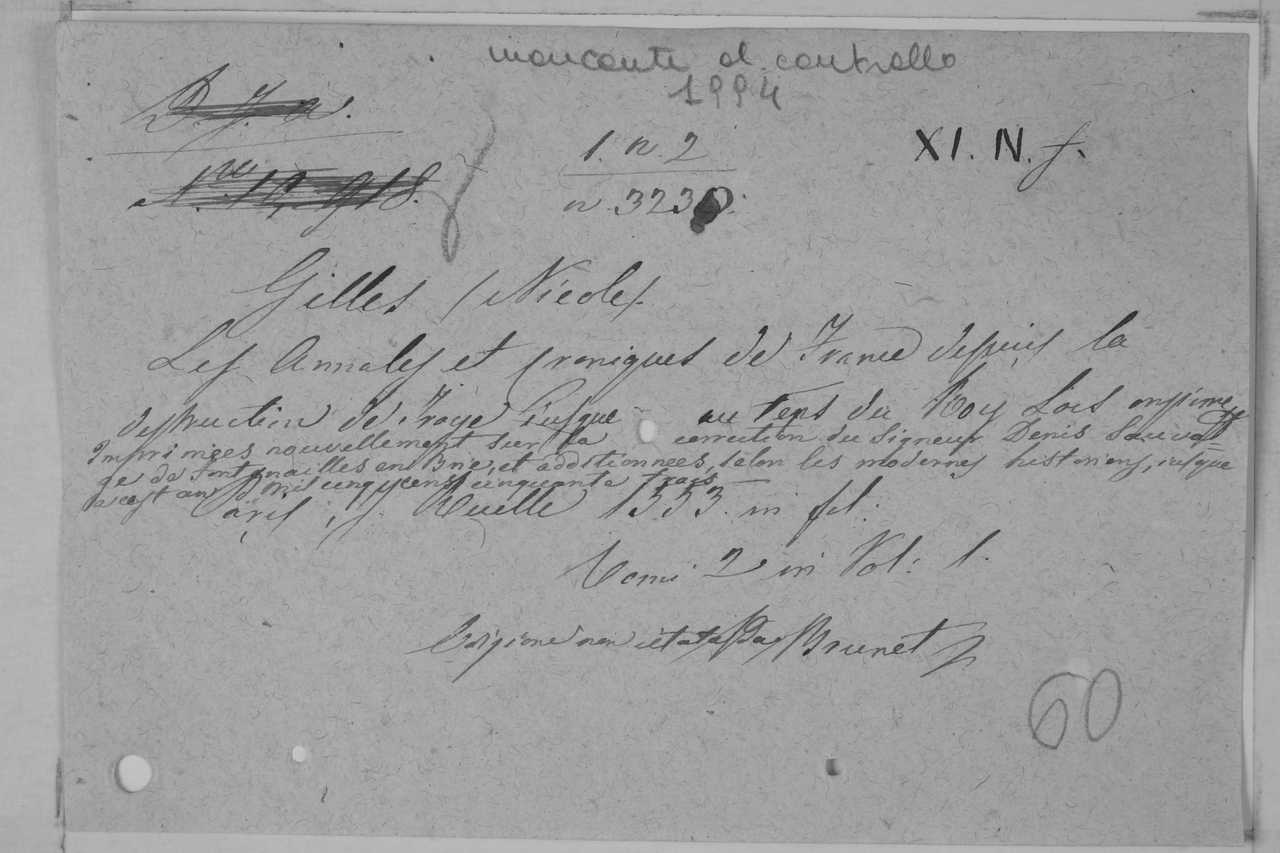 mancante al controllo
1994
1. n 2
XI. N. f.
n. 323
Gilles (Nicole).
Les Annales et croniques de France depuis la
destruction de Troye Jusque au temps du Roy Lois onzieme
Imprimees nouvellement sur la correction du Signeur Denis Sauva
ge de Fontenailles en Brie, et additionnees, selon les modernes historiens, iusque
a cest an mil cinq cens cinquante trois
Paris, Ruelle 1553. in fol.
Tomi 2 in Vol: 1.
Edizione non citata da Brunet
60